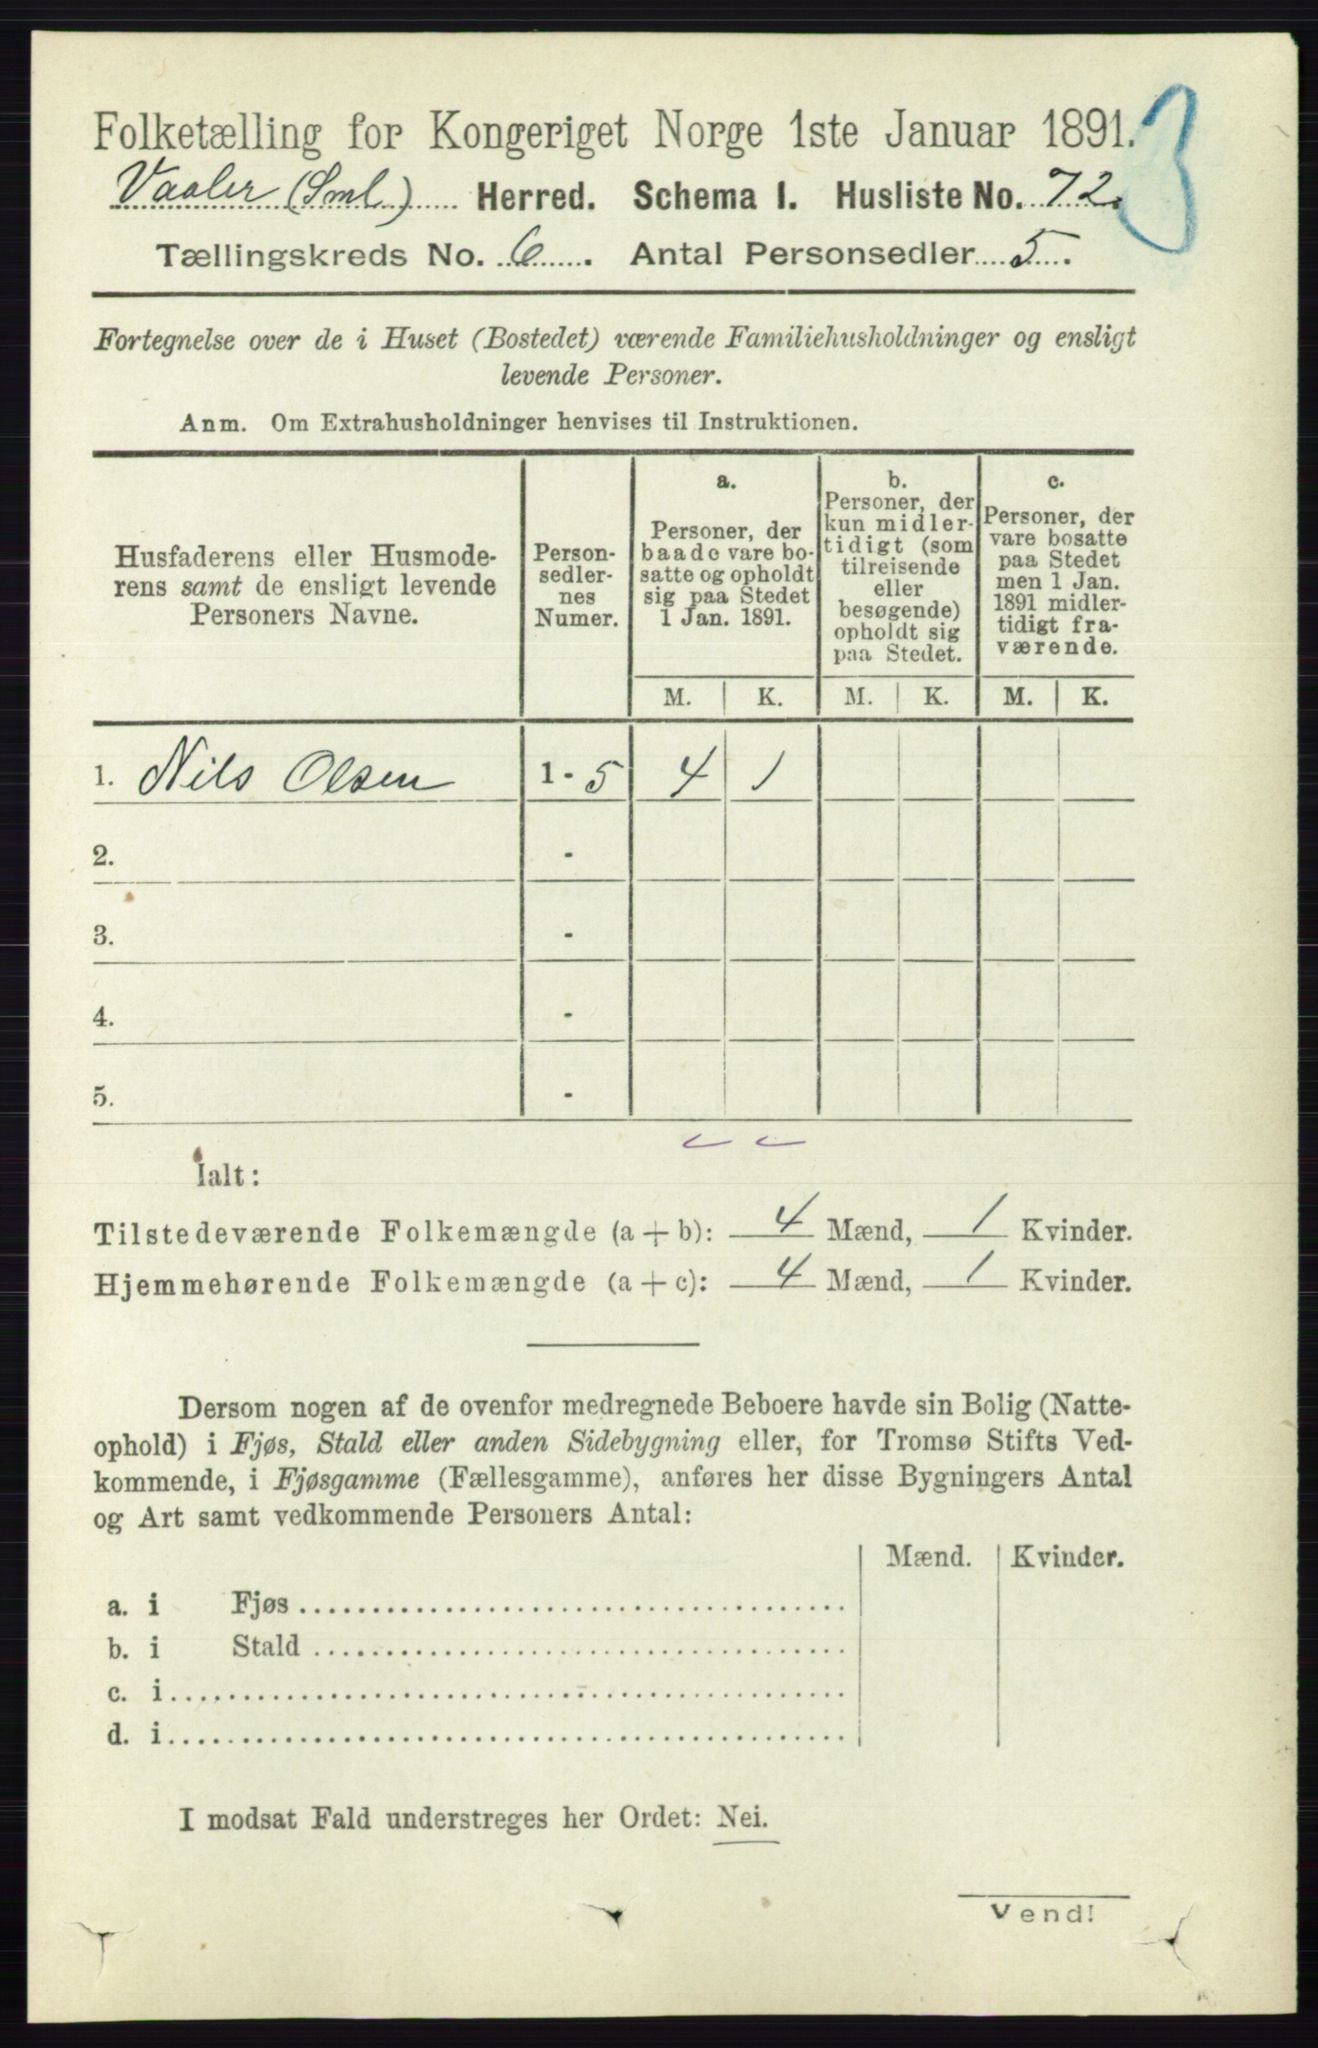 Folketælling for Kongeriget Norge 1ste Januar 1891.
3
Vaaler (Sml.) Herred. Schema I. Husliste No. 72.
Tællingskreds No. 6. Antal Personsedler 5.
Fortegnelse over de i Huset (Bostedet) værende Familiehusholdninger og ensligt
levende Personer.
Anm. Om Extrahusholdninger henvises til Instruktionen.
Husfaderens eller Husmode-
rens samt de ensligt levende
Personers Navne.
Person-
sedler-
nes
Numer.
a.
Personer, der
baade vare bo-
satte og opholdt
sig paa Stedet
1 Jan. 1891.
b.
Personer, der
kun midler-
tidigt (som
tilreisende
eller
besøgende)
opholdt sig
paa Stedet.
c.
Personer, der
vare bosatte
paa Stedet
men 1 Jan.
1891 midler-
tidigt fra-
værende.
M. K. M. K. M. K.
1. Nils Olsen 1 - 5 4 1
2. -
3. -
4. -
5. -
Ialt:
Tilstedeværende Folkemængde (a + b): 4 Mænd, 1 Kvinder.
Hjemmehørende Folkemængde (a + c): 4 Mænd, 1 Kvinder.
Dersom nogen af de ovenfor medregnede Beboere havde sin Bolig (Natte-
ophold) i Fjøs, Stald eller anden Sidebygning eller, for Tromsø Stifts Ved-
kommende, i Fjøsgamme (Fællesgamme), anføres her disse Bygningers Antal
og Art samt vedkommende Personers Antal:
Mænd. Kvinder.
a. i Fjøs
b. i Stald
c. i
d. i
I modsat Fald understreges her Ordet: Nei.
Vend!